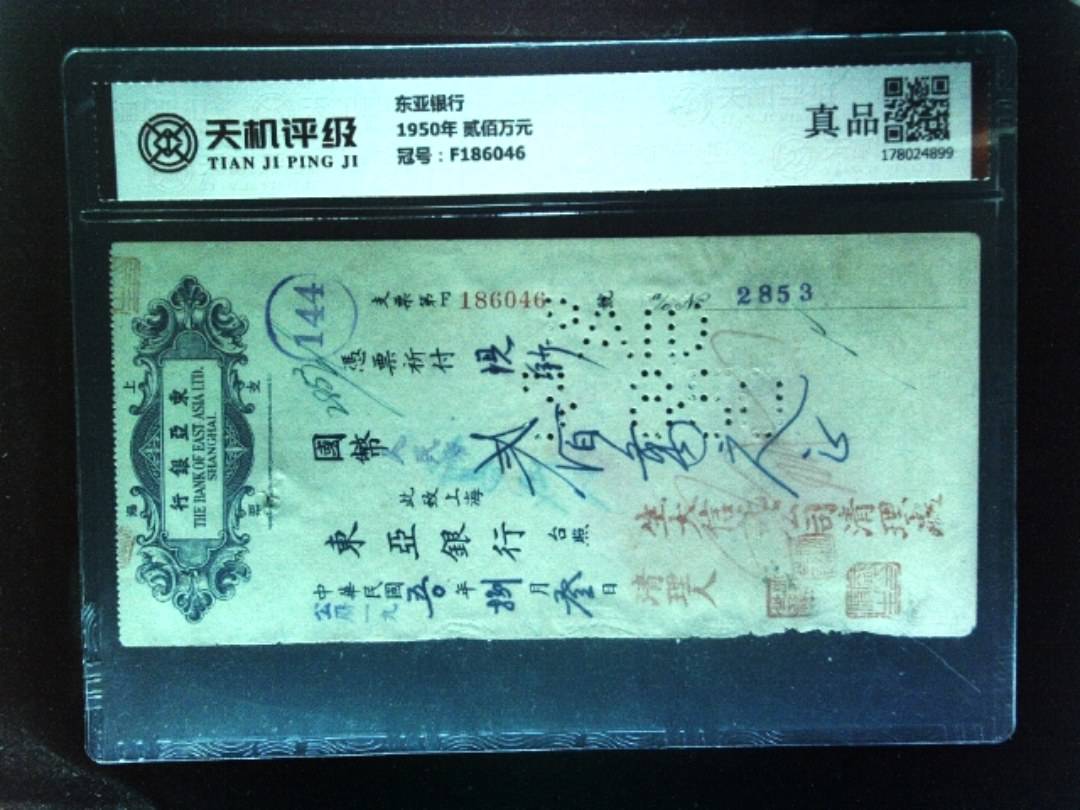 天机评级
TIAN JI PING JI
东亚银行
1950年 贰佰万元
冠号：F186046
真品
178024899
144
支票第 186046 號
2853
憑票祈付
2853
上海
支票
東亞銀行
THE BANK OF EAST ASIA LTD.
SHANGHAI.
國幣 人民幣 貳佰萬元
此致上海
東亞銀行 台照
中華民國 五〇 年 捌 月 叁 日
公歷一九
公司清理
清理人